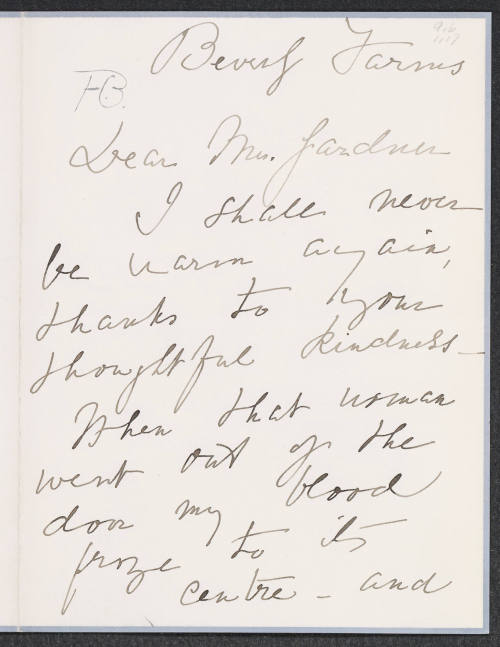 Beverly Farms
F.G.
Dear Mrs. Gardner
I shall never
be warm again,
thanks to your
thoughtful kindness -
When that woman
went out of the
door my blood
froze to its
centre - and